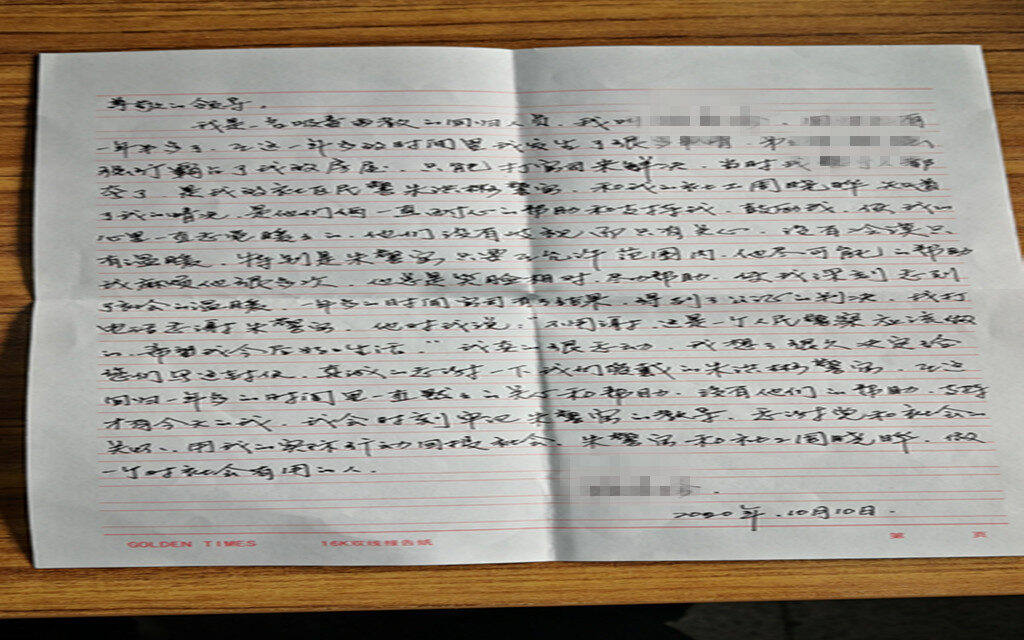 尊敬的领导.
我是一名吸毒戒教的回归人员.我叫
一年多了.在这一年多的时间里我发生了很多
了.只能打官司来解决.当时我
是我的社区民警朱洪彬警官.和我的社工周晓晔知道
了我的情况.是他们俩一直耐心的帮助和支持我.鼓励我.使我的
心里一直感觉暖暖的.他们没有歧视而只有关心.没有冷漠只
有温暖.特别是朱警官只要在允许范围内.他尽可能的帮助
我麻烦他很多次.他总是笑脸相对.尽力帮助.使我深刻感到
了社会的温暖.一年多的时间官司有了结果.得到了公正的判决.我打
电话感谢了朱警官.他对我说:不用谢了.这是一个人民警察应该做
的.希望我今后好好生活."我真的很感动.我想了很久决定给
您们写这封信.真诚的感谢一下我们爱戴的朱洪彬警官.在这
回归一年多的时间里一直默默的关心和帮助.没有他们的帮助.支持
才有今天的我.我会时刻牢记朱警官的教导.感谢党和社会的
关心.用我的实际行动回报社会.朱警官和社工周晓晔.做
一个对社会有用的人.
2020年.10月10日.
GOLDEN TIMES 16K双线报告纸 第 页